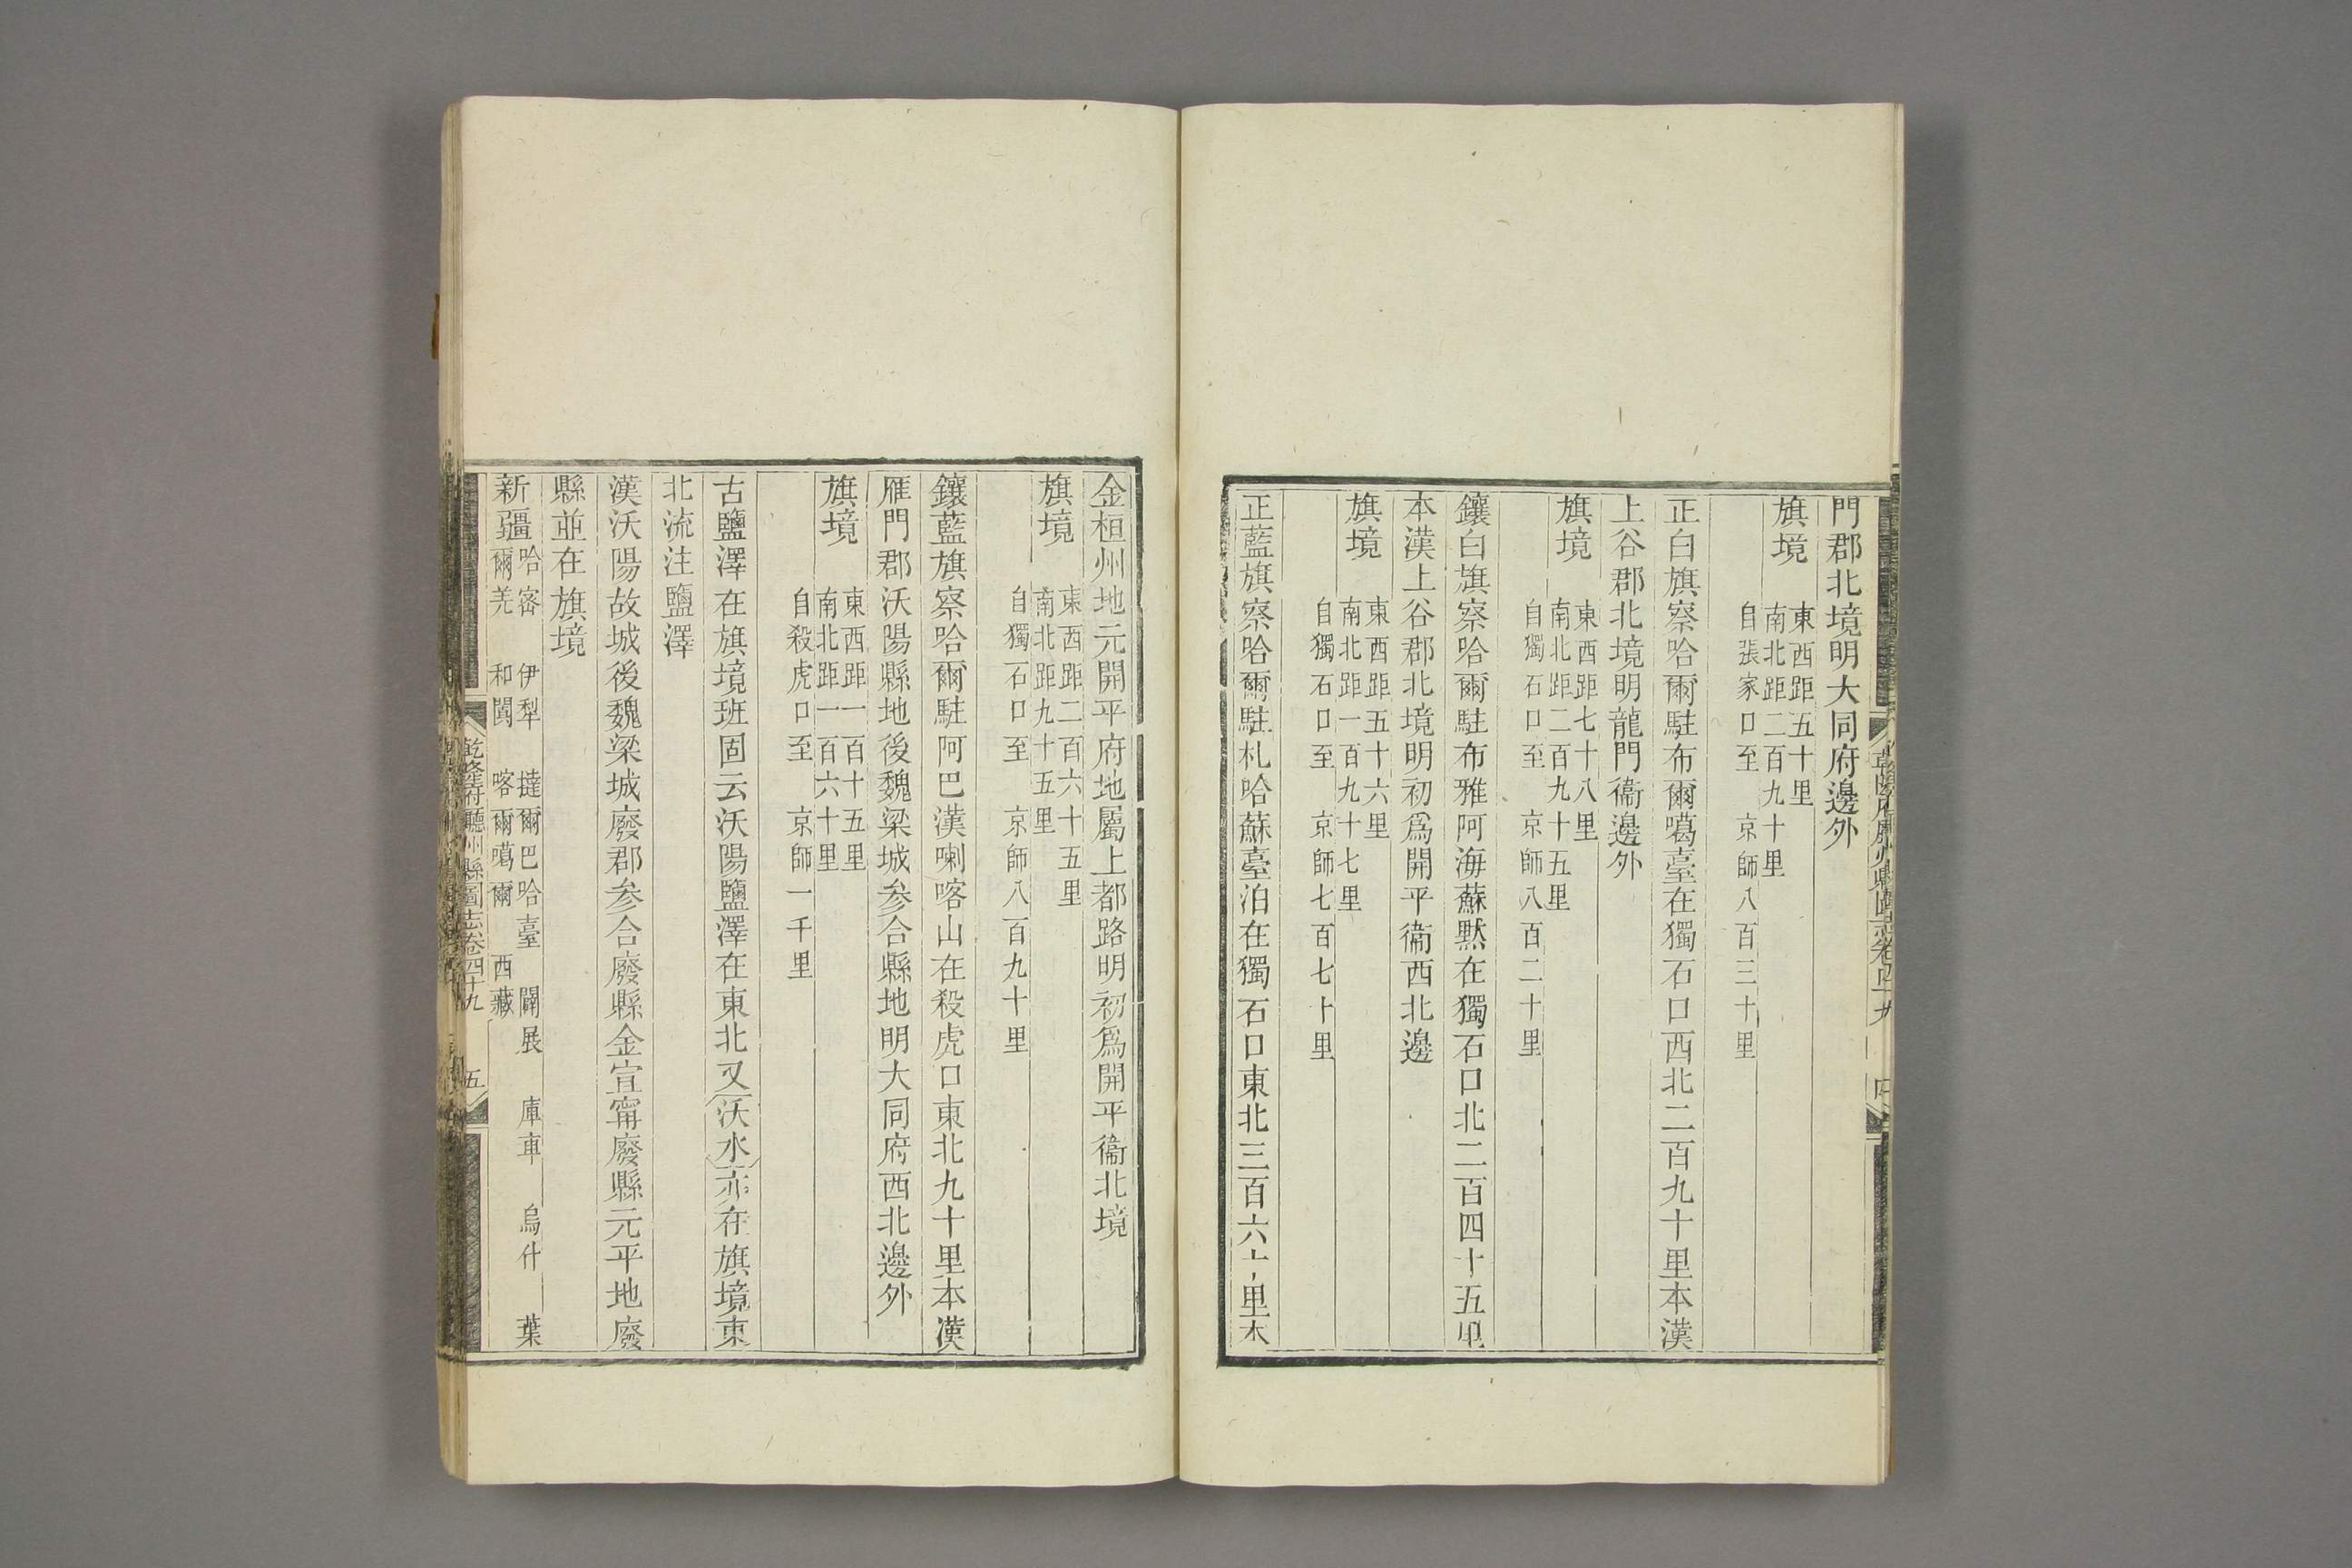 門郡北境明大同府邊外
旗境
東西距五十里
南北距二百九十里
自張家口至　京師八百三十里
正白旗察哈爾駐布爾噶臺在獨石口西北二百九十里本漢
上谷郡北境明龍門衞邊外
旗境
東西距七十八里
南北距二百九十五里
自獨石口至　京師八百二十里
鑲白旗察哈爾駐布雅阿海蘇黙在獨石口北二百四十五里
本漢上谷郡北境明初爲開平衞西北邊
旗境
東西距五十六里
南北距一百九十七里
自獨石口至　京師七百七十里
正藍旗察哈爾駐札哈蘇臺泊在獨石口東北三百六十里本
金桓州地元開平府地屬上都路明初爲開平衞北境
旗境
東西距二百六十五里
南北距九十五里
自獨石口至　京師八百九十里
鑲藍旗察哈爾駐阿巴漢喇喀山在殺虎口東北九十里本漢
雁門郡沃陽縣地後魏梁城參合縣地明大同府西北邊外
旗境
東西距一百十五里
南北距一百六十里
自殺虎口至　京師一千里
古鹽澤在旗境班固云沃陽鹽澤在東北又沃水亦在旗境東
北流注鹽澤
漢沃陽故城後魏梁城廢郡參合廢縣金宣甯廢縣元平地廢
縣並在旗境
新疆
哈密　伊犁　撻爾巴哈臺　闢展　庫車　烏什　葉
爾羌　和闐　喀爾噶爾　西藏
乾隆府廳州縣圖志卷四十九　五